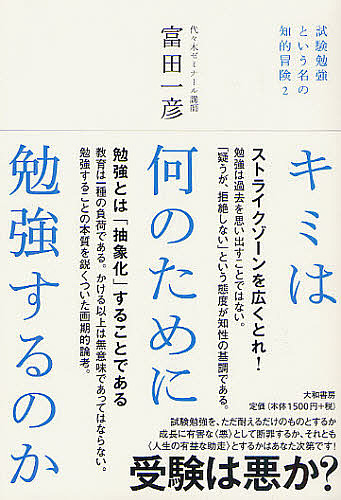 試験勉強
という名の
知的冒険2
代々木ゼミナール講師
富田一彦
キミは
何のために
勉強するのか
ストライクゾーンを広くとれ!
勉強は過去を思い出すことではない。
「疑うが、拒絶しない」という態度が知性の基調である。
勉強とは「抽象化」することである
教育は一種の負荷である。かける以上は無意味であってはならない。
勉強することの本質を鋭くついた画期的論考。
大和書房
定価(本体1500円+税)
試験勉強を、ただ耐えるだけのものとするか
成長に有害な〈悪〉として断罪するか、それとも
〈人生の有益な助走〉とするかはあなた次第です!
受験は悪か?